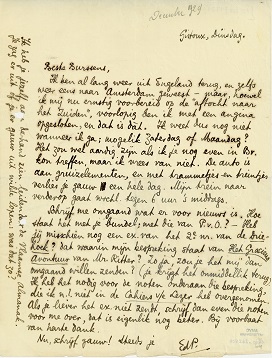 December 1929
Gistoux, Dinsdag.
Beste Burssens,
Ik ben al lang weer uit Engeland terug, en zelfs
weer eens naar Amsterdam geweest - maar, hoewel
ik mij nu ernstig voorbereid op de "aftocht naar
het Zuiden", voorlopig ben ik met een angina
opgesloten, en dat is dàt. Ik weet dus nog niet
wanneer ik ga; mogelijk Zaterdag of Maandag?
Het zou wel aardig zijn als ik je nog even in Br.
kon treffen, maar ik vrees van niet. De auto is
aan gruizelementen, en met trammetjes en treintjes
verlies je gauw een hele dag. Mijn trein naar
verderop gaat wschl. tegen 6 uur 's middags.
Schrijf me omgaand wat er voor nieuws is. Hoe
staat het met je bundel; met die van Pr. O.? - Heb
jij misschien nog een ex. van het 2e nr. van de drie-
hoek? dat waarin mijn bespreking staat van Het Grazig
Avontuur van Mr. Ritter? Zo ja, zou je het mij dan
omgaand willen zenden? (je krijgt het onmiddellik terug)
Ik heb het nodig voor de noten onder aan die bespreking,
die ik n.l. niet in de Cahiers v/e Lezer heb overgenomen.
Als je liever het ex. niet zendt, schrijf dan even die noten
voor me over, dat is eigenlik nog beter. Bij voorbaat
van harte dank!
Nu, schrijf gauw! Steeds je
EduP.